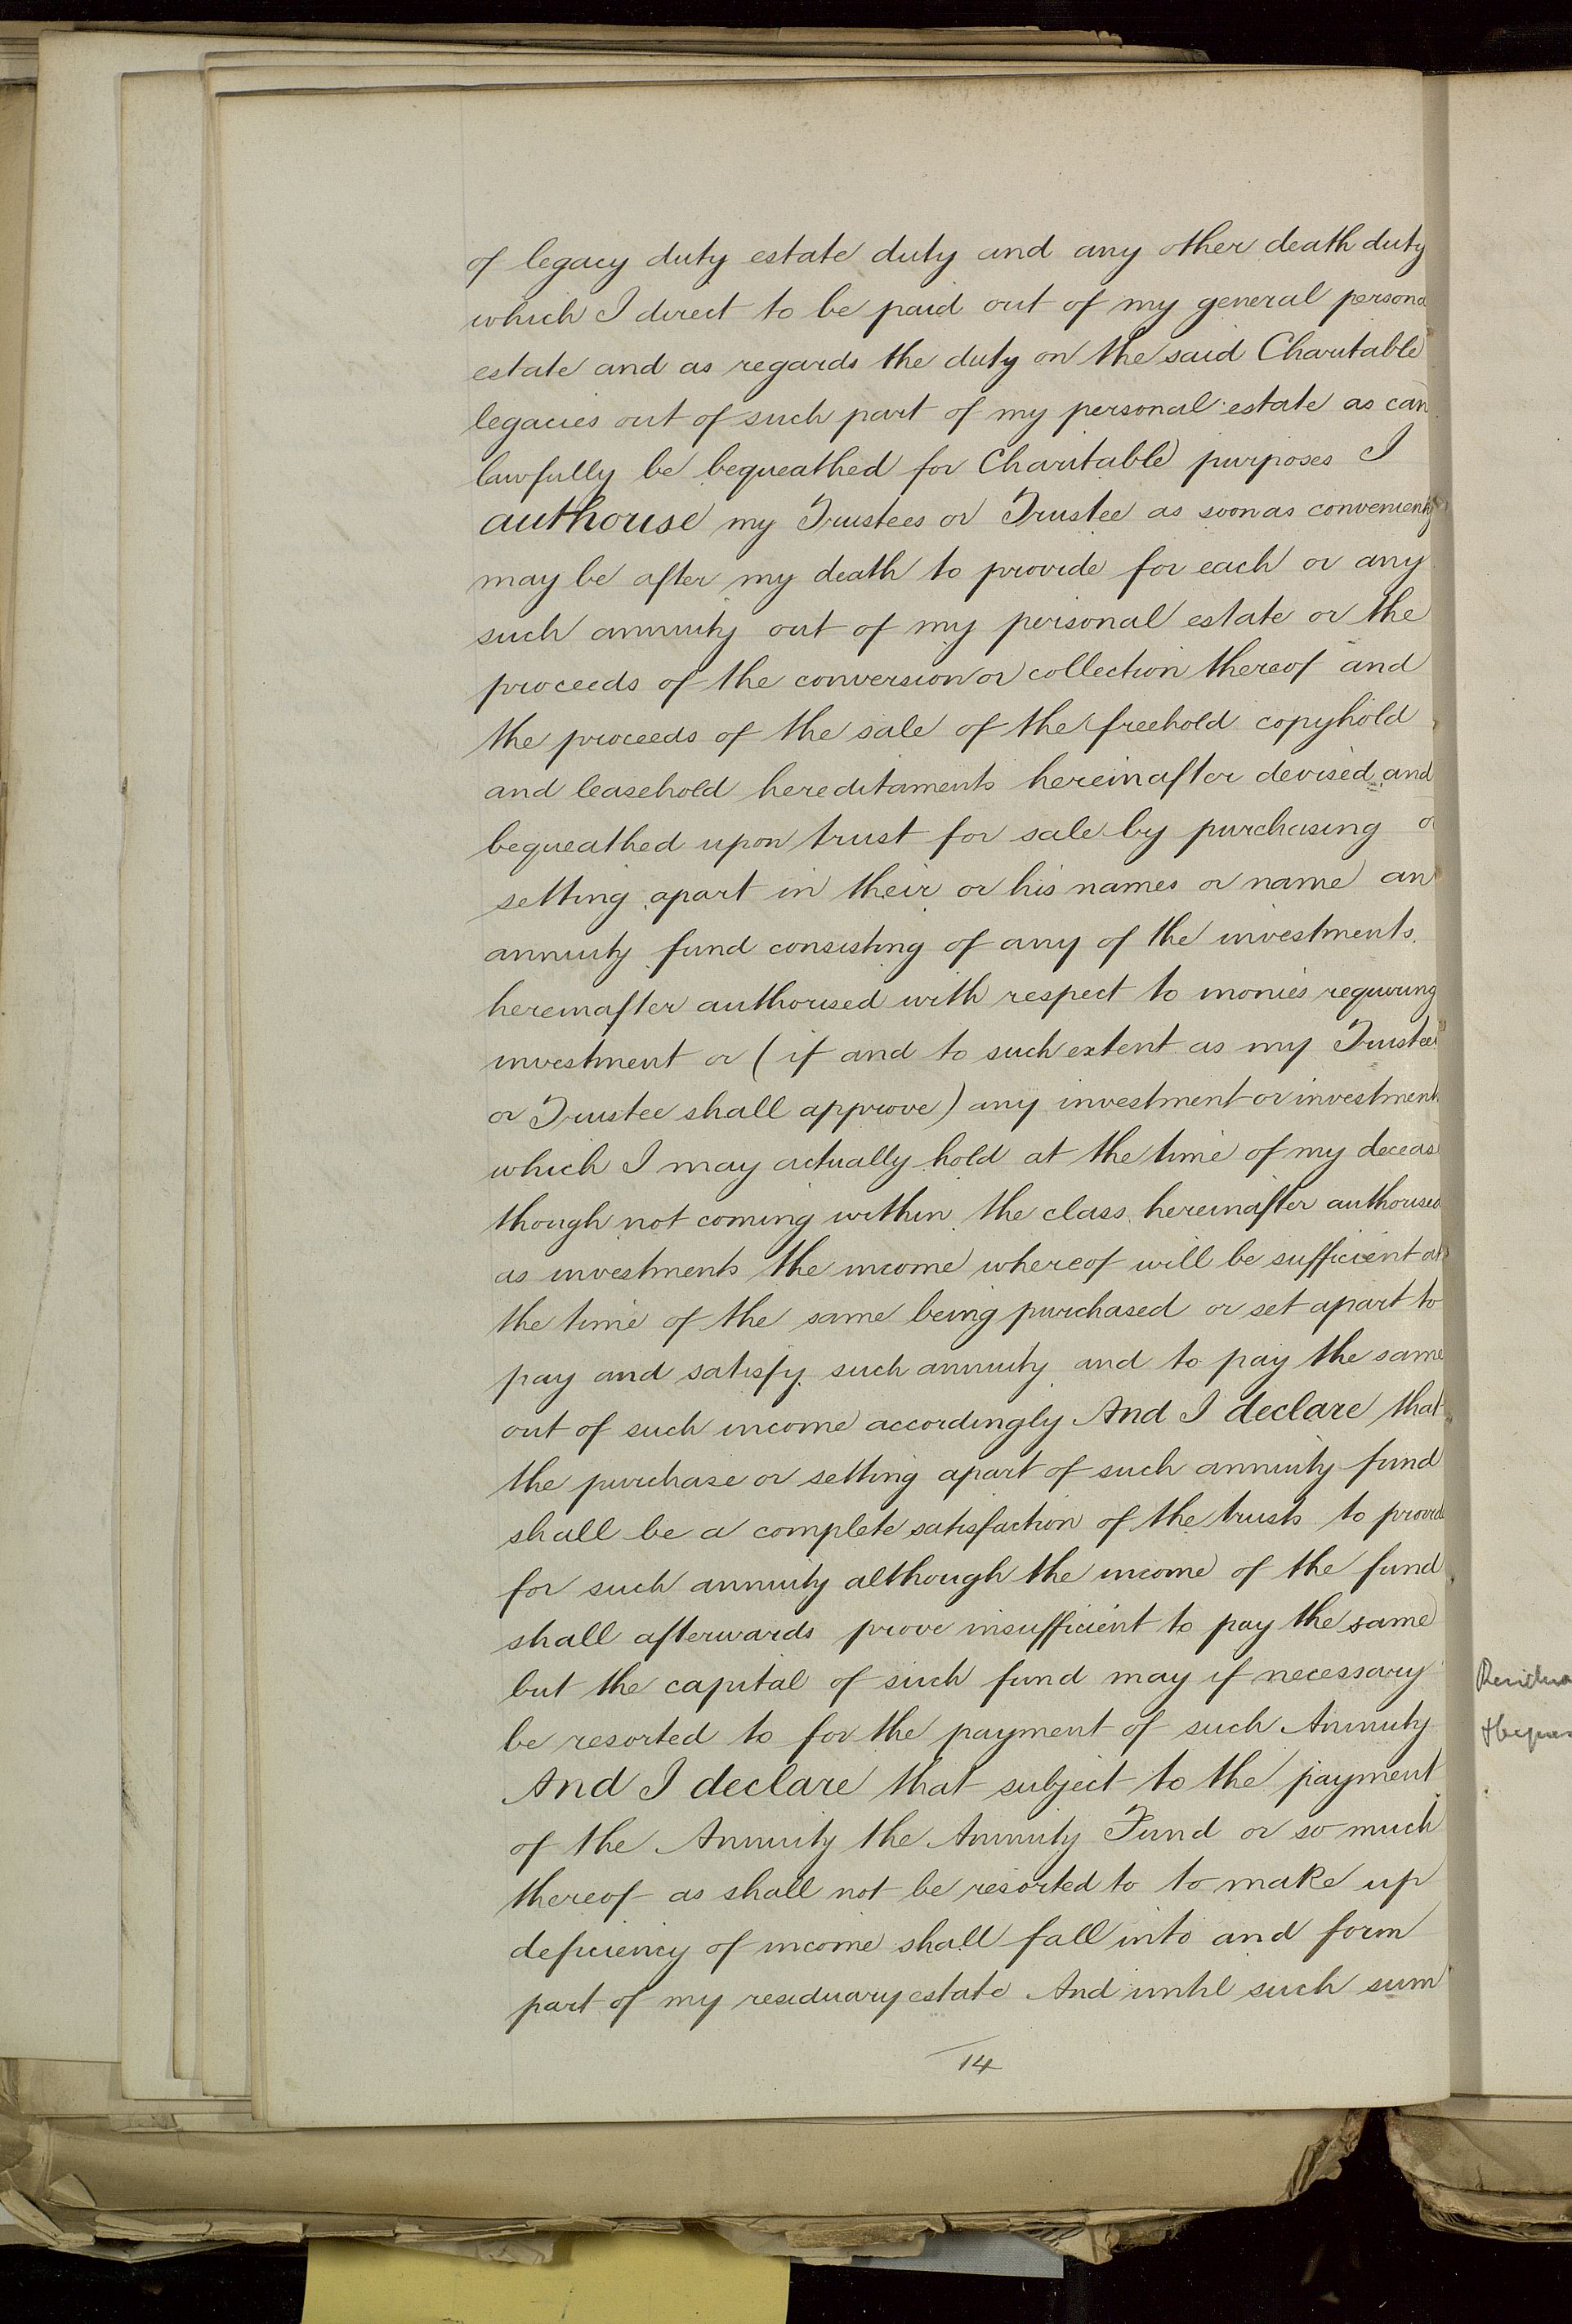 of legacy duty estate duty and any other death duty
which I direct to be paid out of my general persona
estate and as regards the duty on the said Charitable
legacies out of such part of my personal estate as can
lawfully be bequeathed for Charitable purposes I
authorise my Trustees or Trustee as soon as conveniently
may be after my death to provide for each or any
such annuity out of my personal estate or the
proceeds of the conversion or collection thereof and
the proceeds of the sale of the freehold copyhold
and leasehold hereditaments hereinafter devised and
bequeathed upon trust for sale by purchasing o
setting apart in their or his names or name an
annuity fund consisting of any of the investments
hereinafter authorised with respect to monies requiring
investment or (if and to such extent as my Trustees
or Trustee shall approve) any investment or investment
which I may actually hold at the time of my deceas
though not coming within the class hereinafter authorised
as investments the income whereof will be sufficient at
the time of the same being purchased or set apart to
pay and satisfy such annuity and to pay the same
out of such income accordingly And I declare that
the purchase or setting apart of such annuity fund
shall be a complete satisfaction of the trusts to provid
for such annuity although the income of the fund
shall afterwards prove insufficient to pay the same
but the capital of such fund may if necessary
be resorted to for the payment of such Annuity
And I declare that subject to the payment
of the Annuity the Annuity Fund or so much
thereof as shall not be resorted to to make up
deficiency of income shall fall into and form
part of my residuary estate And until such sum
14